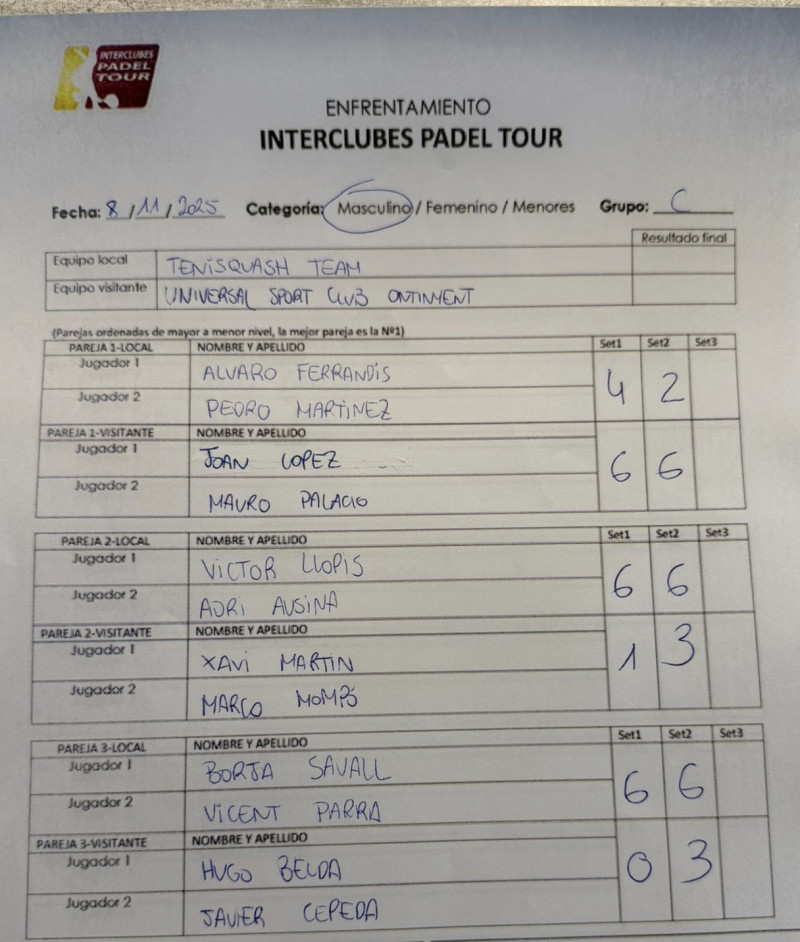 INTERCLUBES
PADEL
TOUR
ENFRENTAMIENTO
INTERCLUBES PADEL TOUR
Fecha: 8 / 11 / 2025 Categoría: Masculino / Femenino / Menores Grupo: C
Resultado final
Equipo local TENISQUASH TEAM
Equipo visitante UNIVERSAL SPORT CLUB ONTINYENT
(Parejas ordenadas de mayor a menor nivel, la mejor pareja es la Nº1)
PAREJA 1-LOCAL NOMBRE Y APELLIDO Set1 Set2 Set3
Jugador 1 ALVARO FERRANDIS
4 2
Jugador 2 PEDRO MARTINEZ
PAREJA 1-VISITANTE NOMBRE Y APELLIDO
Jugador 1 JOAN LOPEZ
6 6
Jugador 2 MAURO PALACIO
PAREJA 2-LOCAL NOMBRE Y APELLIDO Set1 Set2 Set3
Jugador 1 VICTOR LLOPIS
6 6
Jugador 2 ADRI AUSINA
PAREJA 2-VISITANTE NOMBRE Y APELLIDO
Jugador 1 XAVI MARTIN
1 3
Jugador 2 MARCO MOMPÓ
PAREJA 3-LOCAL NOMBRE Y APELLIDO Set1 Set2 Set3
Jugador 1 BORJA SAVALL
6 6
Jugador 2 VICENT PARRA
PAREJA 3-VISITANTE NOMBRE Y APELLIDO
Jugador 1 HUGO BELDA
0 3
Jugador 2 JAVIER CEPEDA